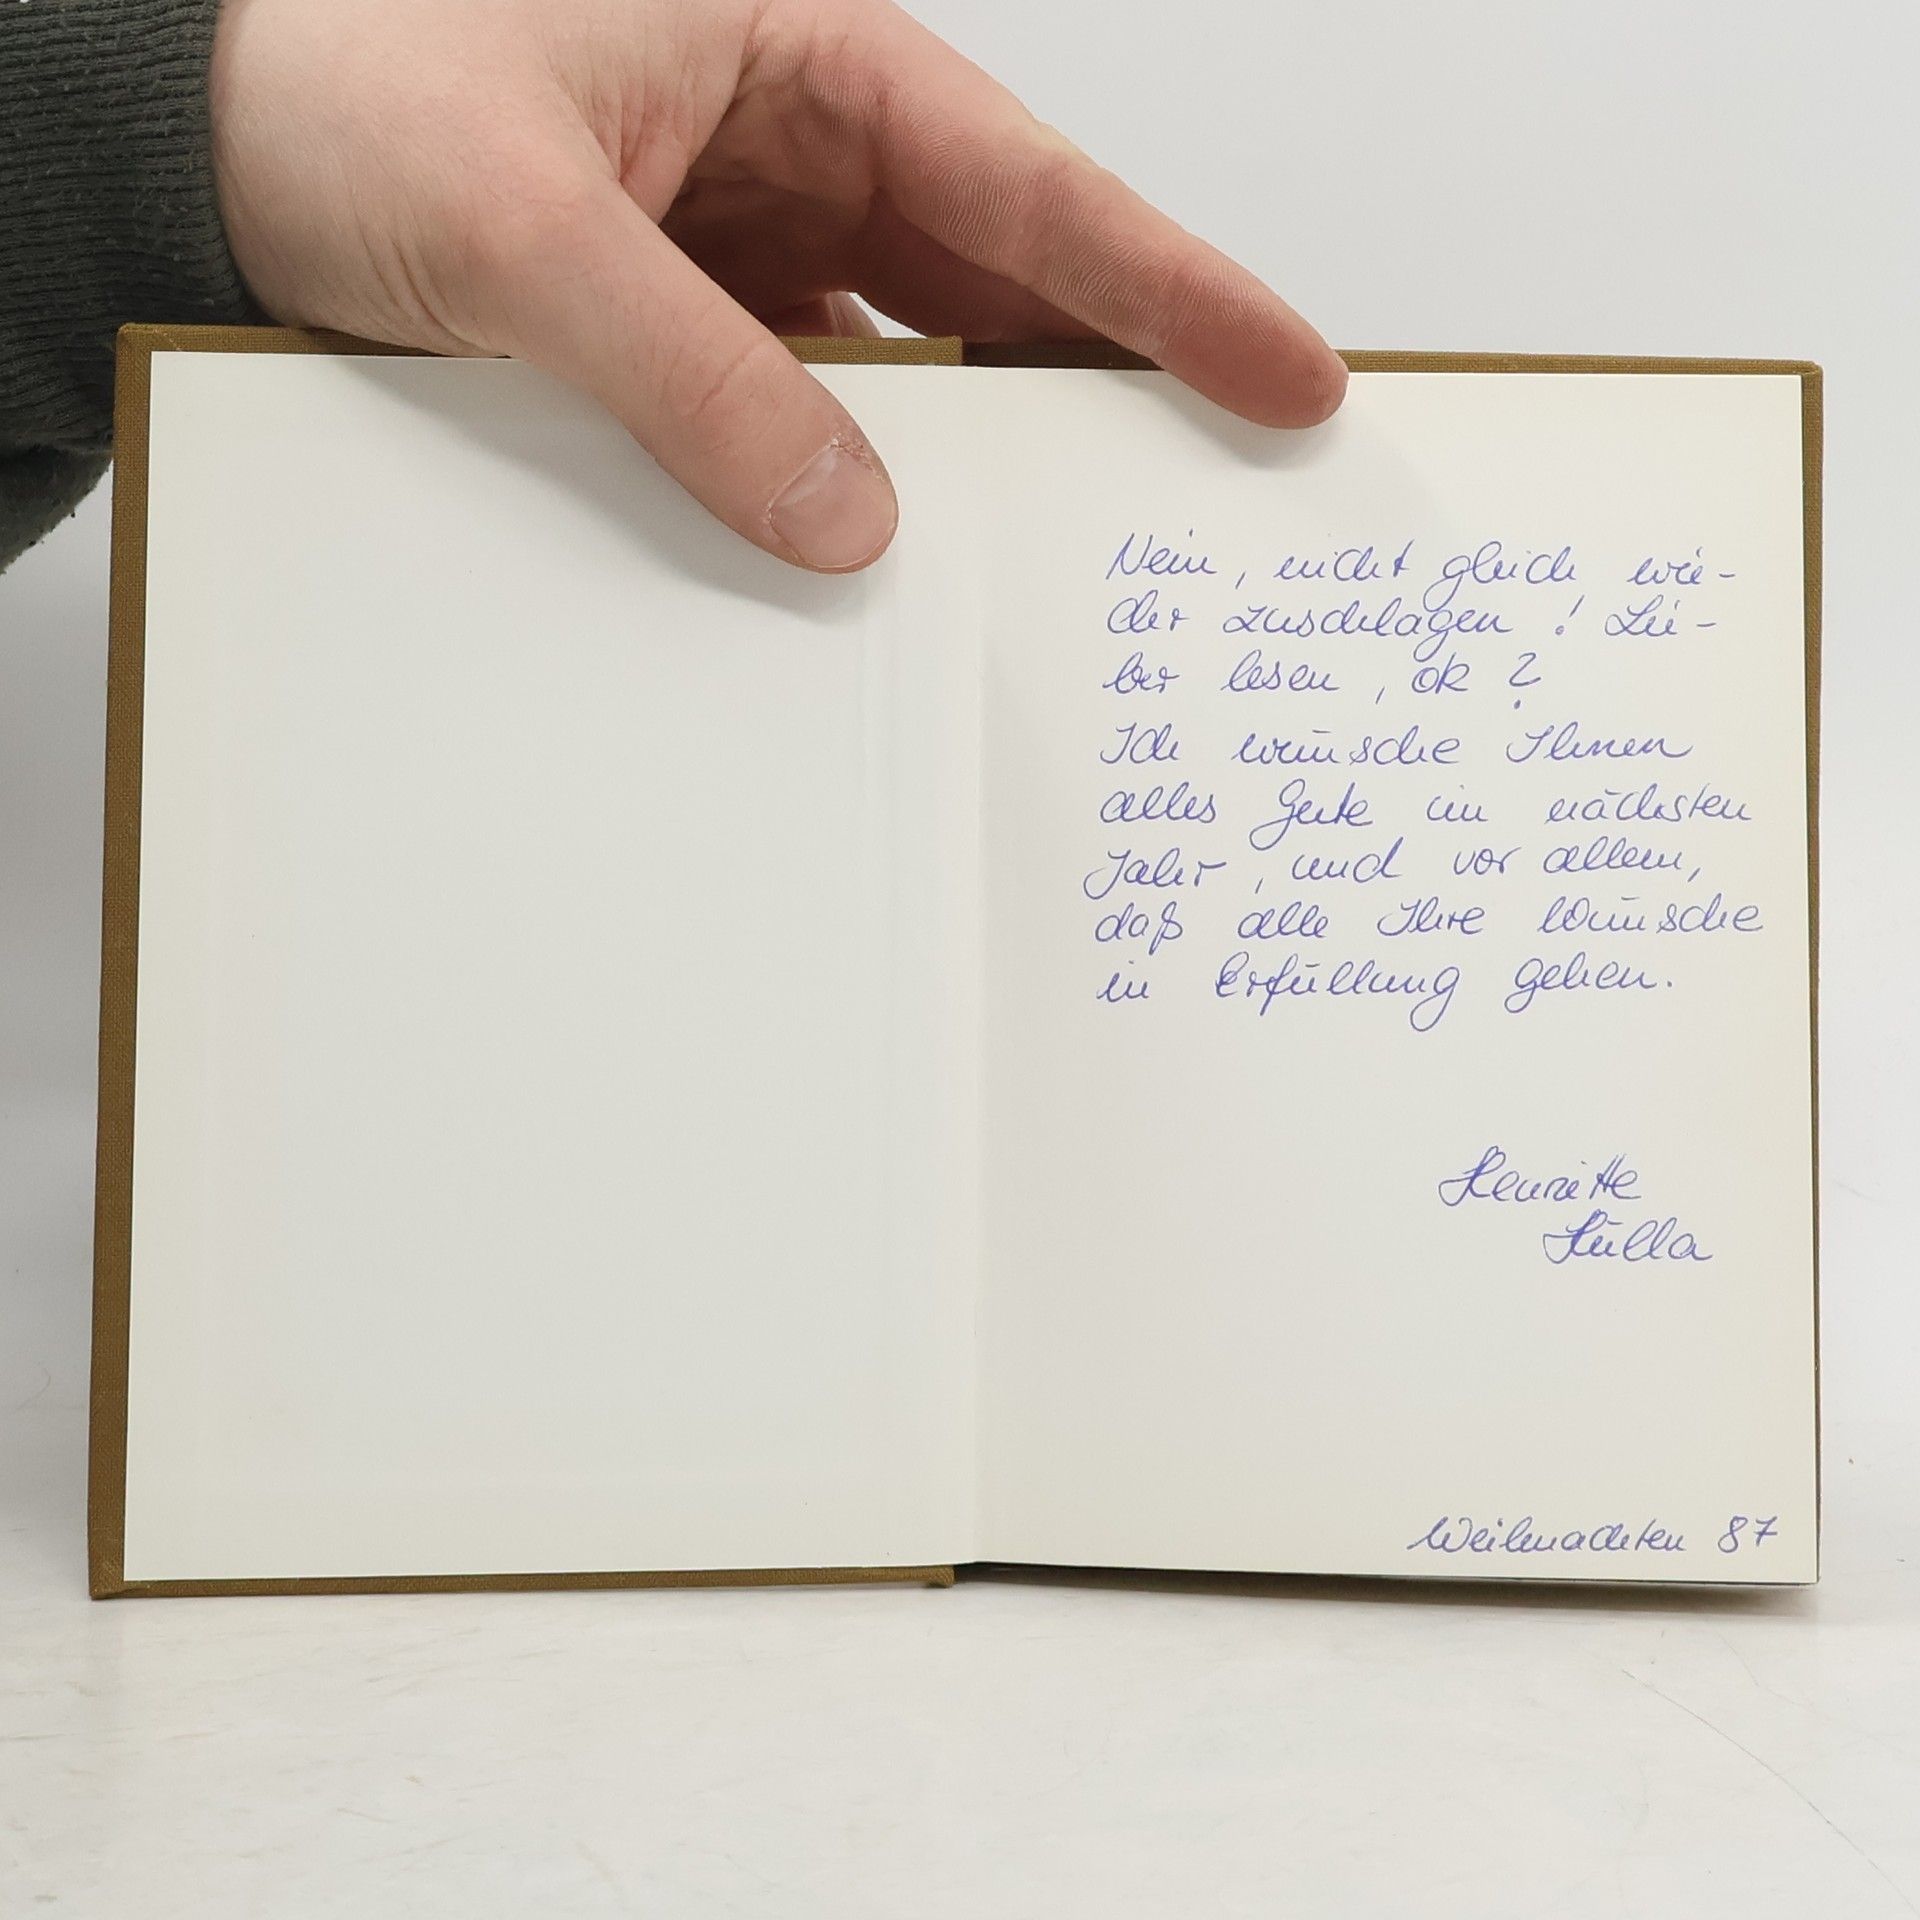 Nein, nicht gleich wie-
der zuschlagen! Lie-
ber lesen, ok?
Ich wünsche Ihnen
alles Gute im nächsten
Jahr, und vor allem,
daß alle Ihre Wünsche
in Erfüllung gehen.
Henriette
Hülla
Weihnachten 87